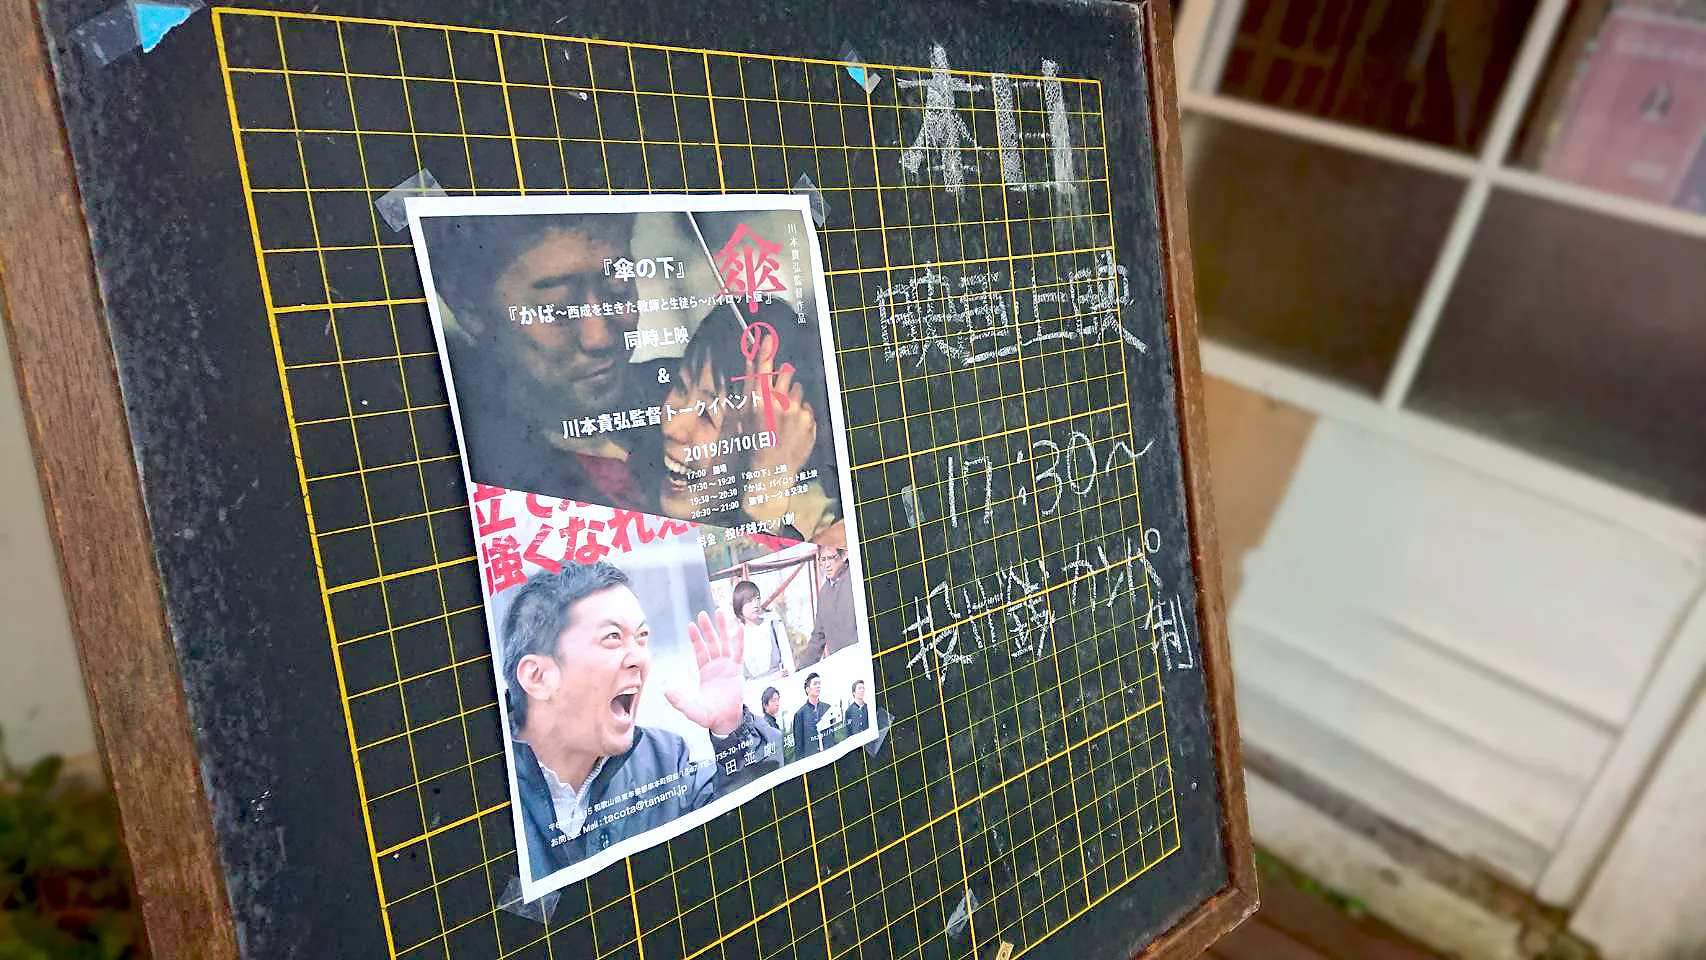 『傘の下』
『かば～西成を生きた教師と生徒ら～パイロット版』
同時上映
&
川本貴弘監督トークイベント
2019/3/10(日)
17:00 開場
17:30～19:20 『傘の下』上映
19:30～20:30 『かば』パイロット版上映
20:30～21:00 監督トーク&交流会
料金 投げ銭カンパ制
川本貴弘監督作品
傘の下
強くなれ
田並劇場
和歌山県東牟婁郡串本町田並
Mail : tacota@tanami.jp
本日
映画上映
17:30～
投げ銭カンパ制